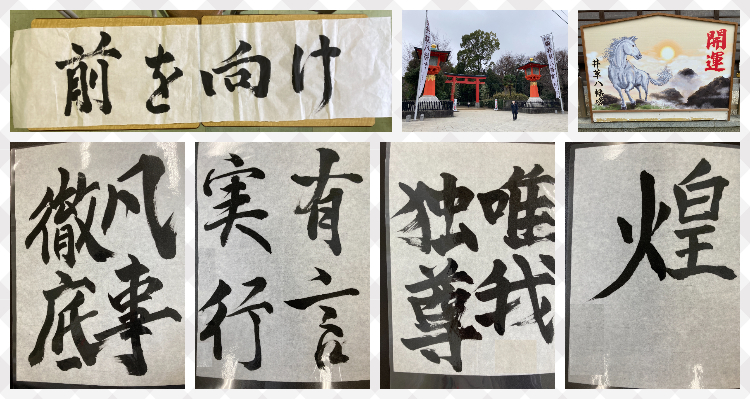 前を向け
開運
井草八幡宮
凡事
徹底
有言
実行
唯我
独尊
煌